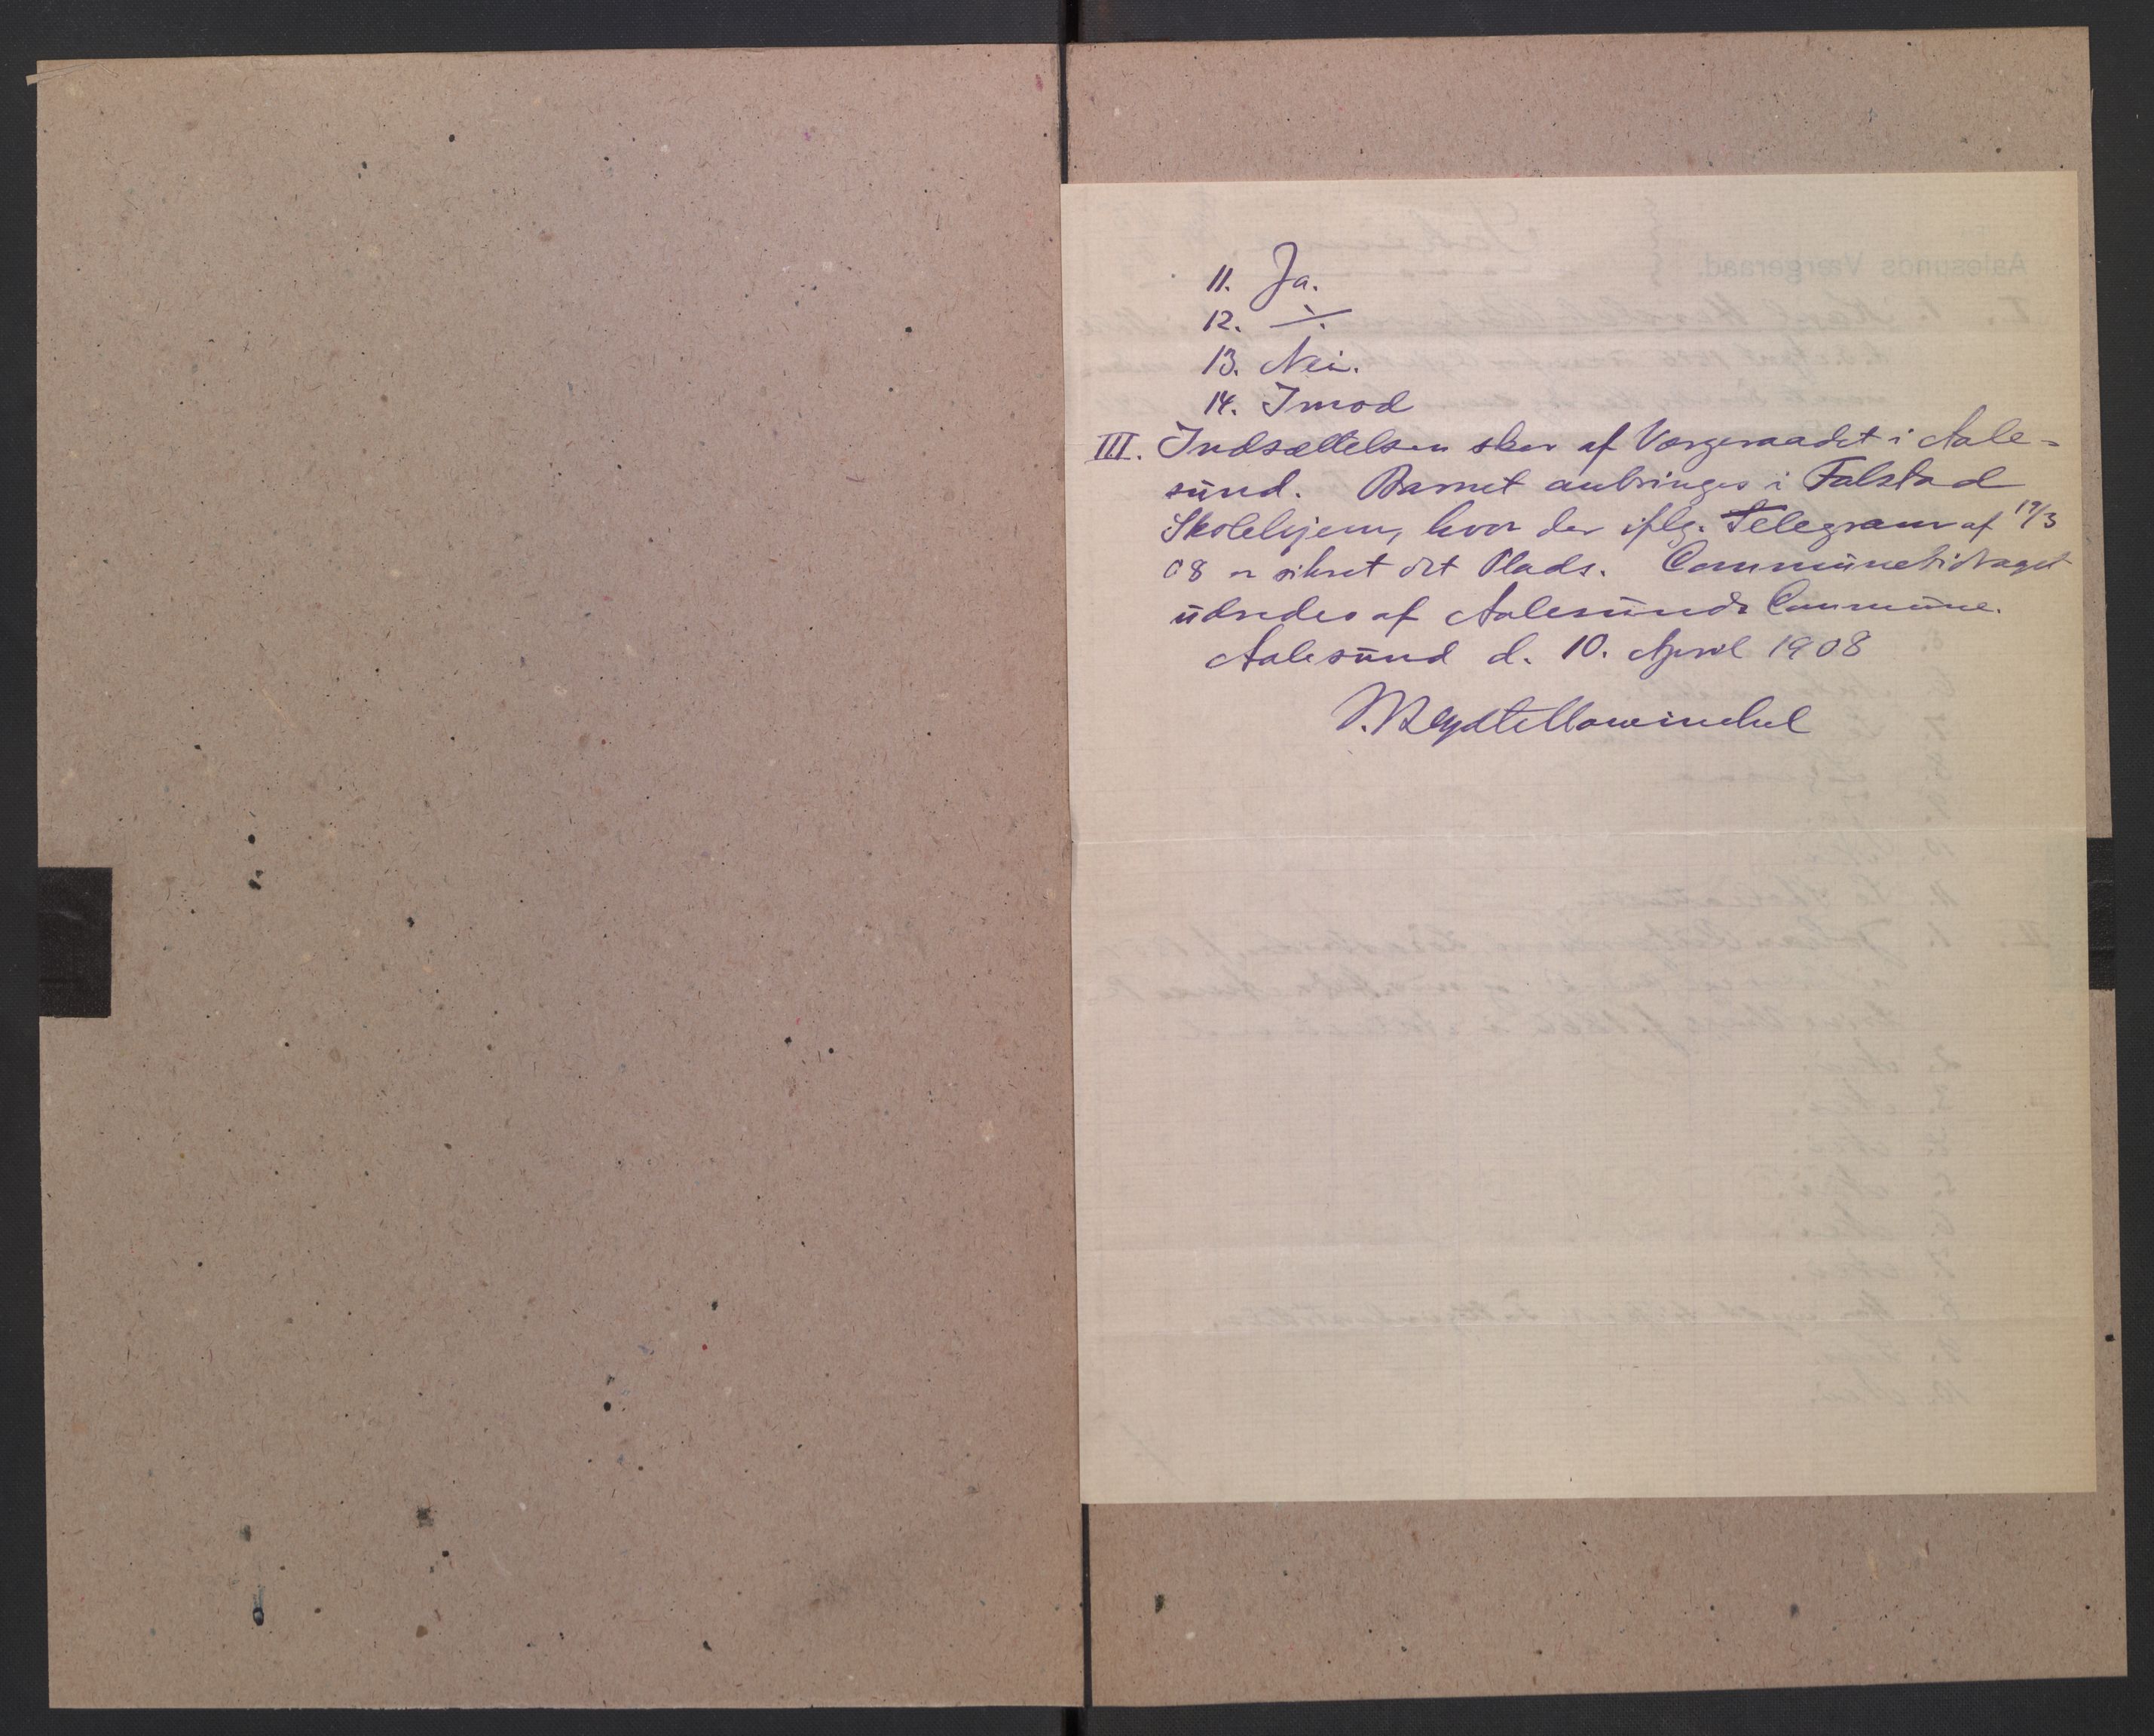 11. Ja.
12. ⁒
13. Nei.
14. Imod
III. Indsættelsen sker af Værgeraadet i Aale-
sund. Barnet anbringes i Falstad
Skolehjem, hvor der iflg. Telegram af 19/3
08 er sikret det Plads. Communebidraget
udredes af Aalesunds Commune.
Aalesund d. 10. April 1908